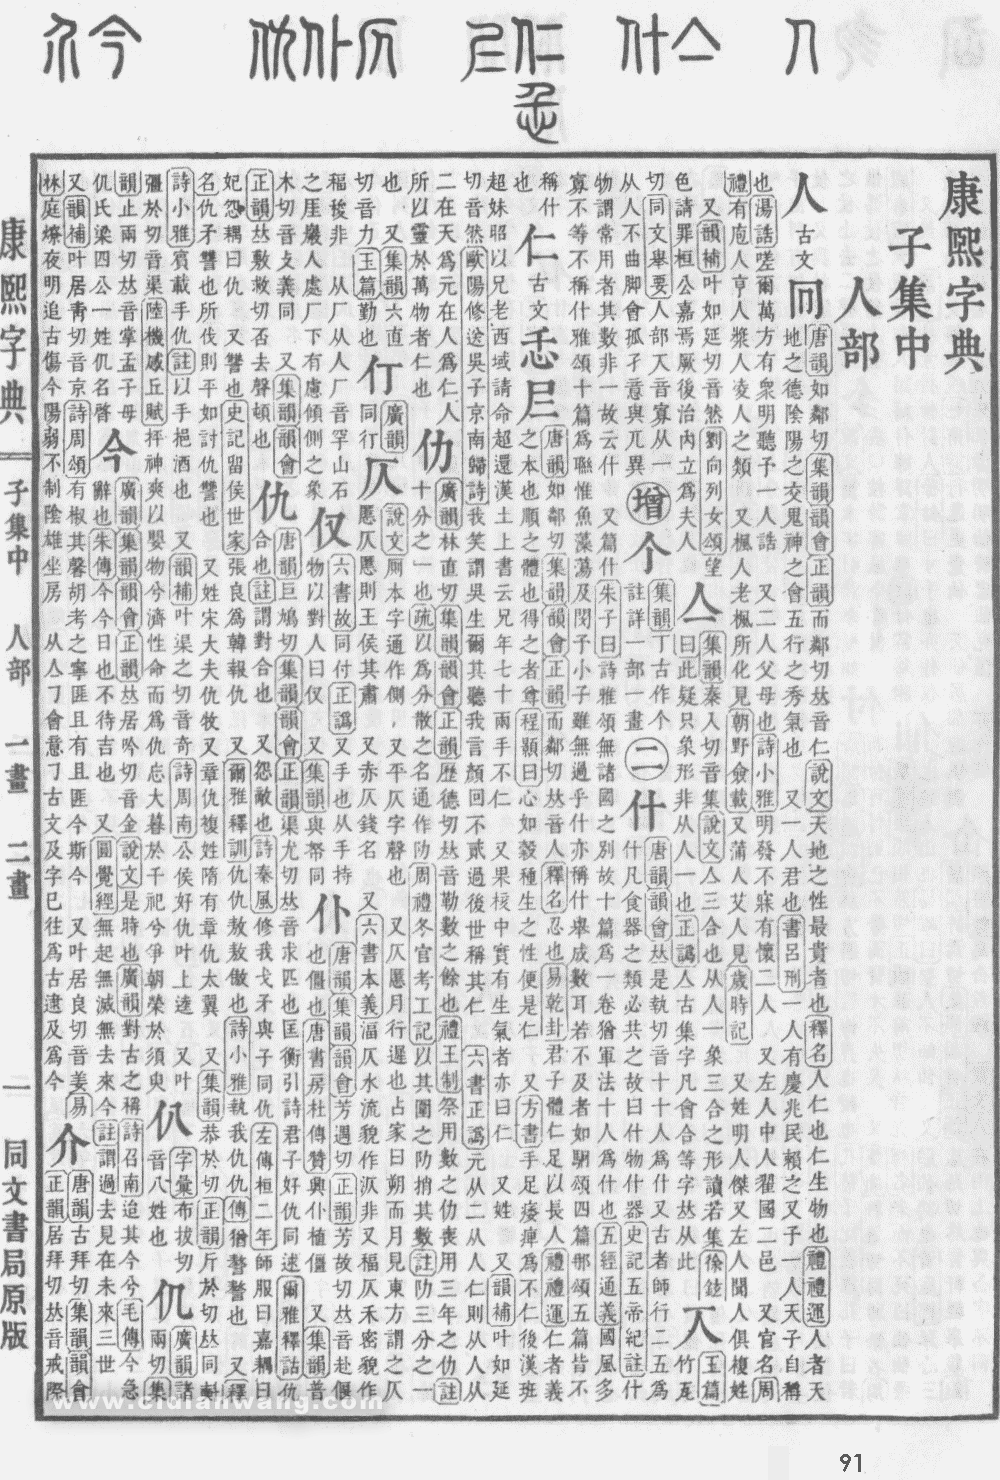 人 仌 什 仁 忎 仄 仆 仇 今 介
康熙字典
子集中
人部
人
古文
唐韻如鄰切集韻韻會正韻而鄰切𠀤音仁說文天地之性最貴者也釋名人仁也仁生物也禮禮運人者天
地之德陰陽之交鬼神之會五行之秀氣也 又一人君也書呂刑一人有慶兆民賴之又予一人天子自稱
也湯誥嗟爾萬方有衆明聽予一人誥 又二人父母也詩小雅明發不寐有懷二人 又左人中人翟國二邑 又官名周
禮有庖人亨人漿人凌人之類 又楓人老楓所化見朝野僉載 又蒲人艾人見歲時記 又姓明人傑又左人聞人俱複姓
又韻補叶如延切音然劉向列女頌望
色請罪桓公嘉焉厥後治內立爲夫人
亼
集韻秦人切音集說文亼三合也从人一象三合之形讀若集徐鉉
曰此疑只象形非从人一也正譌亼古集字凡會合等字𠀤从此
玉篇竹瓦
切同文舉要人部音寡从一
从人不曲脚會孤孑意與兀異
增
个
集韻丁古作个
註詳一部一畫
二
什
唐韻韻會𠀤是執切音十十人爲什又古者師行二五爲
什凡食器之類必共之故曰什物什器史記五帝紀註什
物謂常用者其數非一故云什 又篇什朱子曰詩雅頌無諸國之別故十篇爲一卷猶軍法十人爲什也五經通義國風多
寡不等不稱什雅頌十篇爲聯惟魚藻蕩及閔予小子雖無過乎什亦稱什舉成數耳若不及者如駉頌四篇那頌五篇皆不
稱什
也
仁
古文
忎𡰥
唐韻如鄰切集韻韻會正韻而鄰切𠀤音人釋名忍也易乾卦君子體仁足以長人禮禮運仁者義
之本也順之體也得之者尊程顥曰心如穀種生之性便是仁 又方書手足痿痺爲不仁後漢班
超妹昭以兄老西域請命超還漢土上書云兄年七十兩手不仁 又果核中實有生氣者亦曰仁 又姓 又韻補叶如延
切音然歐陽修送吳子京南歸詩我笑謂吳生爾其聽我言顏回不貳過後世稱其仁 六書正譌元从二从人仁則从人从
二在天爲元在人爲仁人
所以靈於萬物者仁也
仂
廣韻林直切集韻韻會正韻歷德切𠀤音勒數之餘也禮王制祭用數之仂喪用三年之仂註
十分之一也疏以爲分散之名通作阞周禮冬官考工記以其圍之阞捎其數註阞三分之一
也 又集韻六直
切音力玉篇勤也
廣韻
同行
仄
說文厠本字通作側 又平仄字聲也 又仄慝月行遲也占家曰朔而月見東方謂之仄
慝仄慝則王侯其肅 又赤仄錢名 又六書本義湢仄水流貌作㲸非又福仄禾密貌作
福稄非 从厂从人厂音罕山石
之厓巖人處厂下有慮傾側之象
仅
六書故同付正譌又手也从手持
物以對人曰仅 又集韻與帑同
仆
唐韻集韻韻會芳遇切正韻芳故切𠀤音赴偃
也僵也唐書房杜傳贊興仆植僵 又集韻普
木切音攴義同 又集韻韻會
正韻𠀤敷救切否去聲頓也
仇
唐韻巨鳩切集韻韻會正韻渠尤切𠀤音求匹也匡衡引詩君子好仇同逑爾雅釋詁仇
合也註謂對合也 又怨敵也詩秦風修我戈矛與子同仇左傳桓二年師服曰嘉耦曰
妃怨耦曰仇 又讐也史記留侯世家張良爲韓報仇 又爾雅釋訓仇仇敖敖傲也詩小雅執我仇仇傳猶謷謷也 又釋
名仇矛讐也所伐則平如討仇讐也 又姓宋大夫仇牧又章仇複姓隋有章仇太翼 又集韻恭於切正韻斤於切𠀤同
詩小雅賓載手仇註以手挹酒也 又韻補叶渠之切音奇詩周南公侯好仇叶上逵 又叶
彊於切音渠陸機感丘賦抨神爽以嬰物兮濟性命而爲仇忘大暮於千祀兮爭朝榮於須臾
仈
字彙布拔切
音八姓也
仉
廣韻諸
兩切集
韻止兩切𠀤音掌孟子母
仉氏梁四公一姓仉名
今
廣韻集韻韻會正韻𠀤居吟切音金說文是時也廣韻對古之稱詩召南迨其今兮毛傳今急
辭也朱傳今今日也不待吉也 又圓覺經無起無滅無去來今註謂過去見在未來三世
又韻補叶居靑切音京詩周頌有椒其馨胡考之寧匪且有且匪今斯今 又叶居良切音姜易
林庭燎夜明追古傷今陽弱不制陰雄坐房 从亼㇇會意㇇古文及字巳往爲古逮及爲今
介
唐韻古拜切集韻韻會
正韻居拜切𠀤音戒際
康熙字典 子集中 人部 一畫 二畫 一 同文書局原版
www.cidianwang.com
91